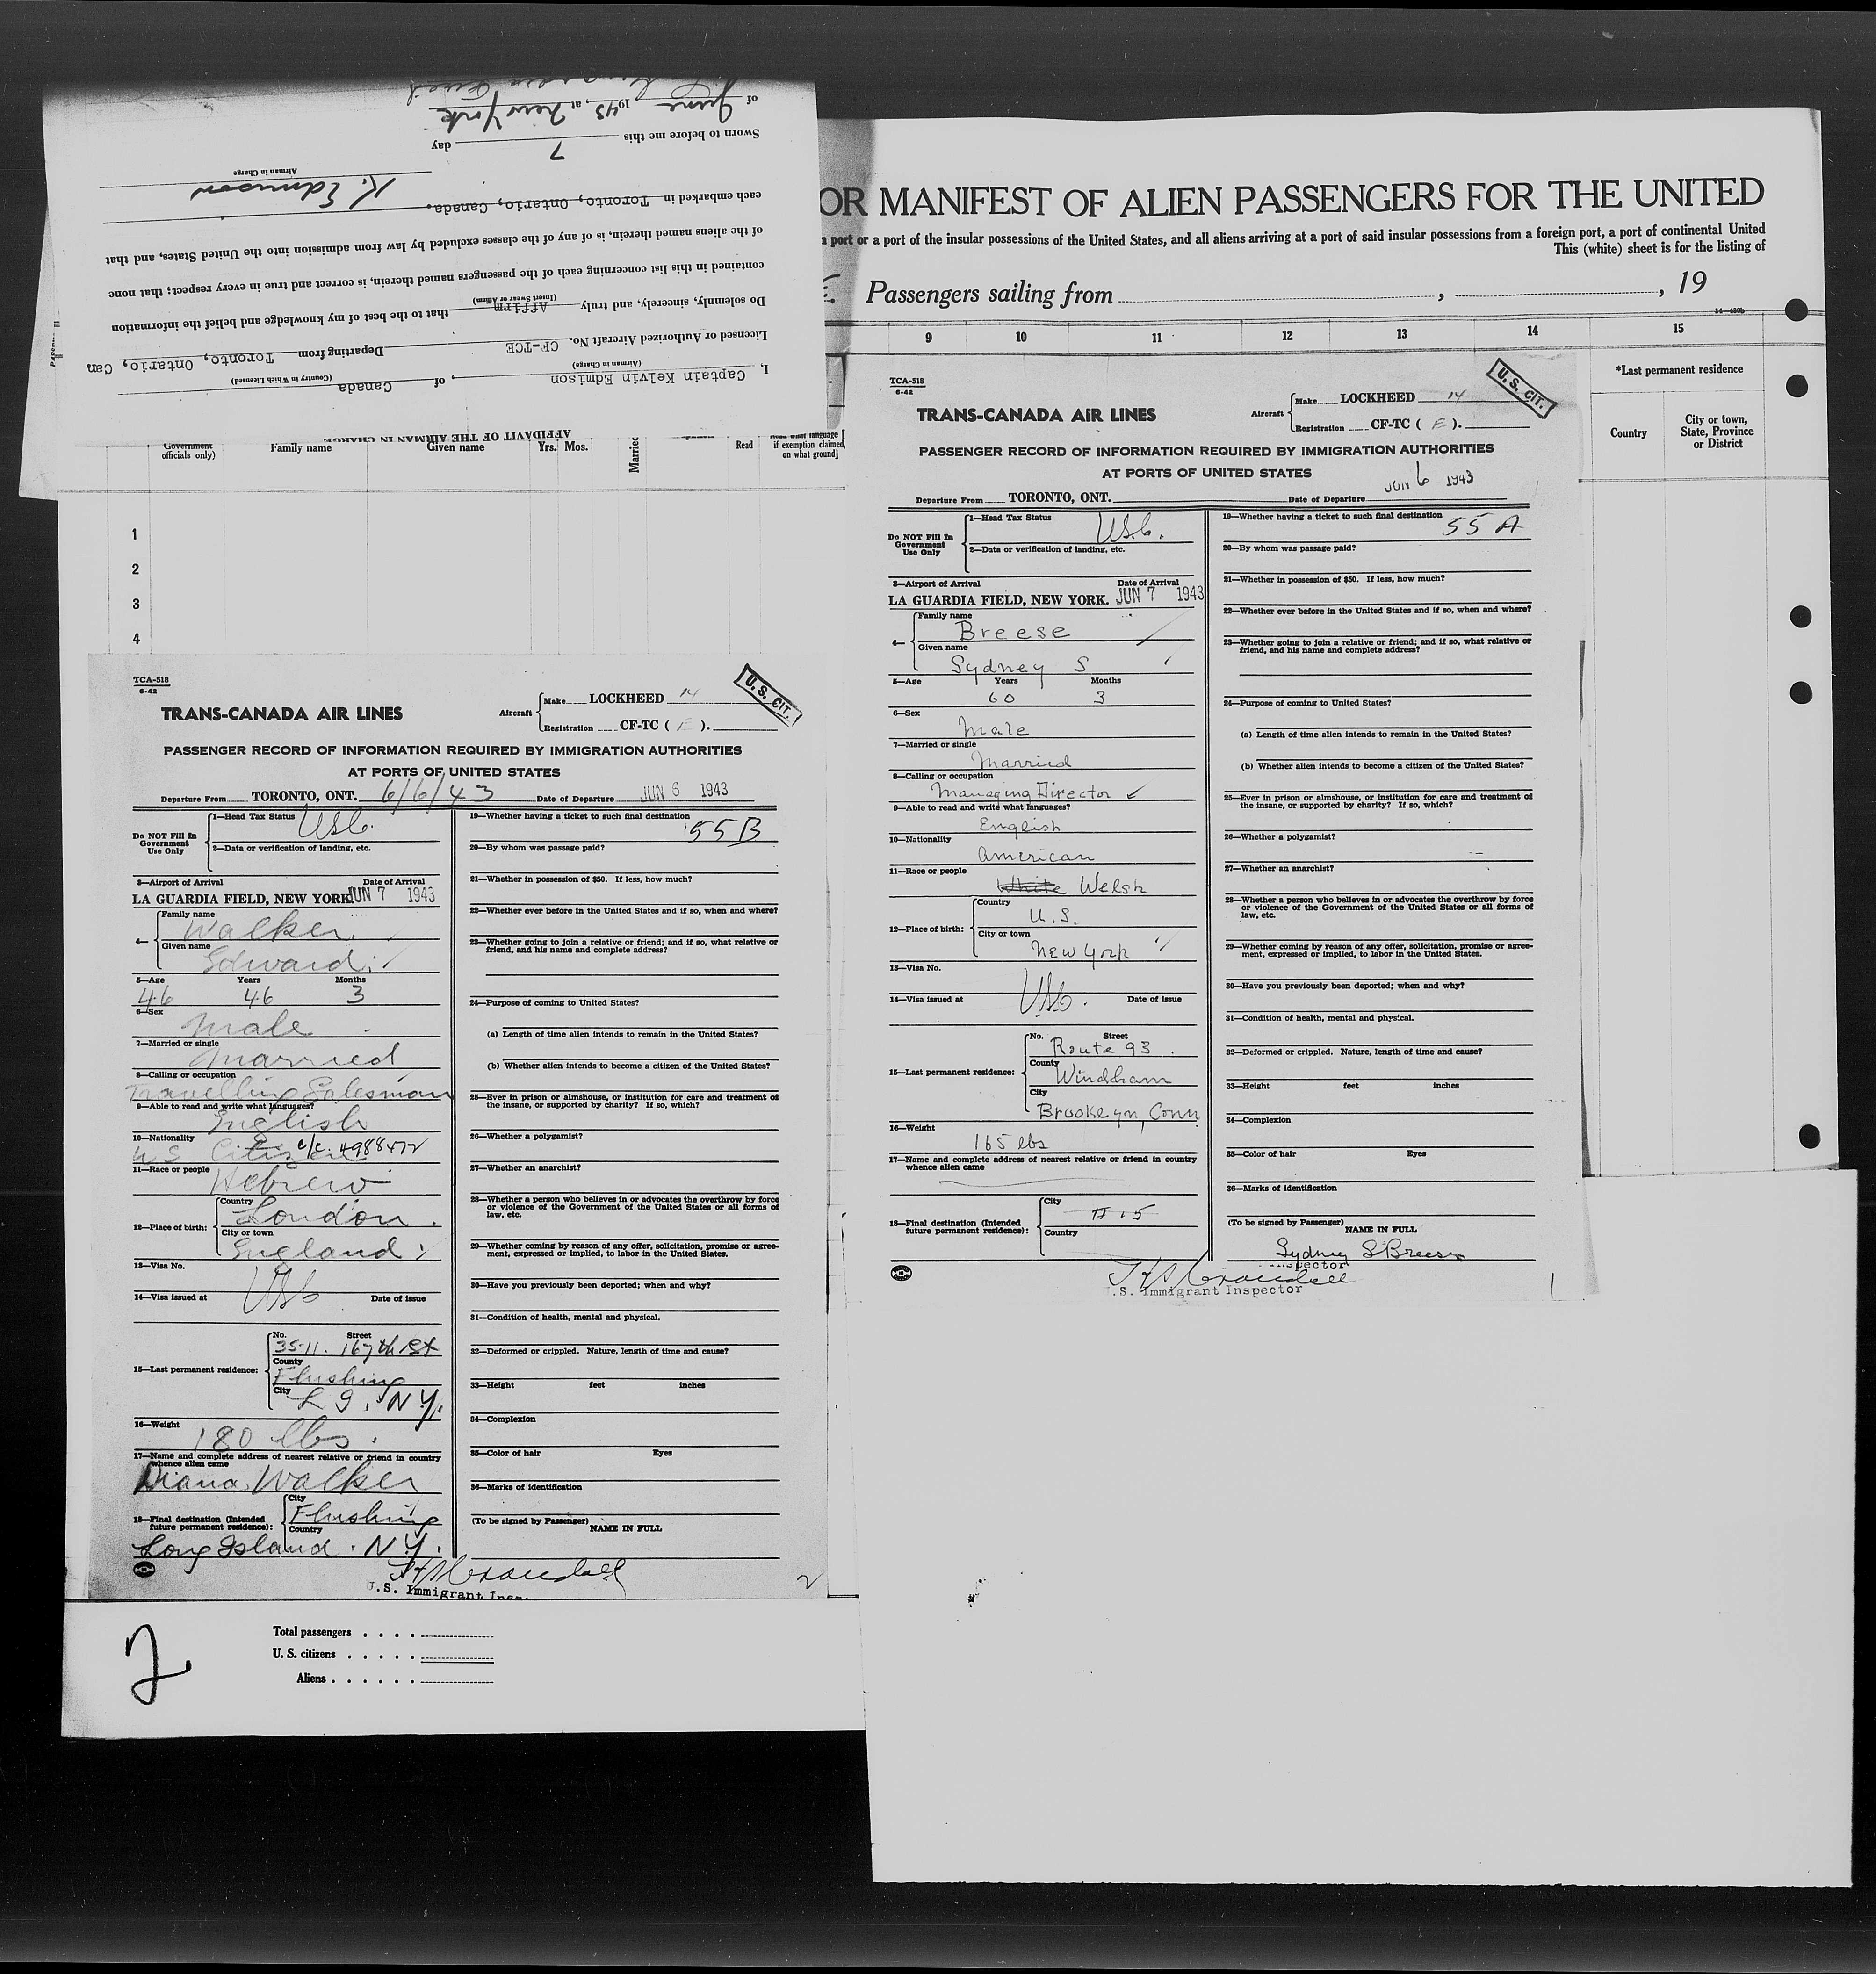 of June 1943, at New York
Sworn to before me this 7 day
Airman in Charge
K. Edmison
each embarked in Toronto, Ontario, Canada.
of the aliens named therein, is of any of the classes excluded by law from admission into the United States, and that
contained in this list concerning each of the passengers named therein, is correct and true in every respect; that none
(Insert Swear or Affirm)
Do solemnly, sincerely, and truly Affirm that to the best of my knowledge and belief the information
Licensed or Authorized Aircraft No. CF-TCE Departing from Toronto, Ontario, Can
(Airman in Charge) (Country in Which Licensed)
I, Captain Kelvin Edmison, of Canada
AFFIDAVIT OF THE AIRMAN IN CHARGE
OR MANIFEST OF ALIEN PASSENGERS FOR THE UNITED
port or a port of the insular possessions of the United States, and all aliens arriving at a port of said insular possessions from a foreign port, a port of continental United
This (white) sheet is for the listing of
Passengers sailing from , , 19
9 10 11 12 13 14 15
*Last permanent residence
Country
City or town, State, Province or District
Government officials only)
Family name
Given name
Yrs. Mos.
Married
Read
if exemption claimed, on what ground]
1
2
3
4
TCA-518
6-42
TRANS-CANADA AIR LINES
Aircraft
Make LOCKHEED 14
Registration CF-TC ( E ).
U. S. CIT.
PASSENGER RECORD OF INFORMATION REQUIRED BY IMMIGRATION AUTHORITIES
AT PORTS OF UNITED STATES
Departure From TORONTO, ONT. 6/6/43 Date of Departure JUN 6 1943
Do NOT Fill In Government Use Only
1—Head Tax Status USC.
2—Data or verification of landing, etc.
3—Airport of Arrival Date of Arrival
LA GUARDIA FIELD, NEW YORK. JUN 7 1943
4—
Family name
Walker
Given name
Edward
5—Age Years Months
46 46 3
6—Sex
Male
7—Married or single
Married
8—Calling or occupation
Travelling Salesman
9—Able to read and write what languages?
English
10—Nationality
US Citizen c/c. 4988472
11—Race or people
Hebrew
12—Place of birth:
Country
London
City or town
England
13—Visa No.
USC
14—Visa issued at Date of issue
15—Last permanent residence:
No. Street
35-11. 167th St
County
Flushing
City
L I. N.Y.
16—Weight
180 lbs.
17—Name and complete address of nearest relative or friend in country whence alien came
Diana Walker
18—Final destination (Intended future permanent residence):
City
Flushing
Country
Long Island. N.Y.
19—Whether having a ticket to such final destination
55B
20—By whom was passage paid?
21—Whether in possession of $50. If less, how much?
22—Whether ever before in the United States and if so, when and where?
23—Whether going to join a relative or friend; and if so, what relative or friend, and his name and complete address?
24—Purpose of coming to United States?
(a) Length of time alien intends to remain in the United States?
(b) Whether alien intends to become a citizen of the United States?
25—Ever in prison or almshouse, or institution for care and treatment of the insane, or supported by charity? If so, which?
26—Whether a polygamist?
27—Whether an anarchist?
28—Whether a person who believes in or advocates the overthrow by force or violence of the Government of the United States or all forms of law, etc.
29—Whether coming by reason of any offer, solicitation, promise or agreement, expressed or implied, to labor in the United States.
30—Have you previously been deported; when and why?
31—Condition of health, mental and physical.
32—Deformed or crippled. Nature, length of time and cause?
33—Height feet inches
34—Complexion
35—Color of hair Eyes
36—Marks of identification
(To be signed by Passenger) NAME IN FULL
U.S. Immigrant Insp
2
2
Total passengers
U. S. citizens
Aliens
TCA-518
6-42
TRANS-CANADA AIR LINES
Aircraft
Make LOCKHEED 14
Registration CF-TC ( E ).
U. S. CIT.
PASSENGER RECORD OF INFORMATION REQUIRED BY IMMIGRATION AUTHORITIES
AT PORTS OF UNITED STATES
Departure From TORONTO, ONT. Date of Departure JUN 6 1943
Do NOT Fill In Government Use Only
1—Head Tax Status USC.
2—Data or verification of landing, etc.
3—Airport of Arrival Date of Arrival
LA GUARDIA FIELD, NEW YORK. JUN 7 1943
4—
Family name
Breese
Given name
Sydney S
5—Age Years Months
60 3
6—Sex
Male
7—Married or single
Married
8—Calling or occupation
Managing Director
9—Able to read and write what languages?
English
10—Nationality
American
11—Race or people
White Welsh
12—Place of birth:
Country
U.S.
City or town
New York
13—Visa No.
USC.
14—Visa issued at Date of issue
15—Last permanent residence:
No. Street
Route 93
County
Windham
City
Brooklyn, Conn
16—Weight
165 lbs
17—Name and complete address of nearest relative or friend in country whence alien came
18—Final destination (Intended future permanent residence):
City
Country
19—Whether having a ticket to such final destination
55 A
20—By whom was passage paid?
21—Whether in possession of $50. If less, how much?
22—Whether ever before in the United States and if so, when and where?
23—Whether going to join a relative or friend; and if so, what relative or friend, and his name and complete address?
24—Purpose of coming to United States?
(a) Length of time alien intends to remain in the United States?
(b) Whether alien intends to become a citizen of the United States?
25—Ever in prison or almshouse, or institution for care and treatment of the insane, or supported by charity? If so, which?
26—Whether a polygamist?
27—Whether an anarchist?
28—Whether a person who believes in or advocates the overthrow by force or violence of the Government of the United States or all forms of law, etc.
29—Whether coming by reason of any offer, solicitation, promise or agreement, expressed or implied, to labor in the United States.
30—Have you previously been deported; when and why?
31—Condition of health, mental and physical.
32—Deformed or crippled. Nature, length of time and cause?
33—Height feet inches
34—Complexion
35—Color of hair Eyes
36—Marks of identification
(To be signed by Passenger) NAME IN FULL
Sydney S Breese
Inspector
U.S. Immigrant Inspector
1